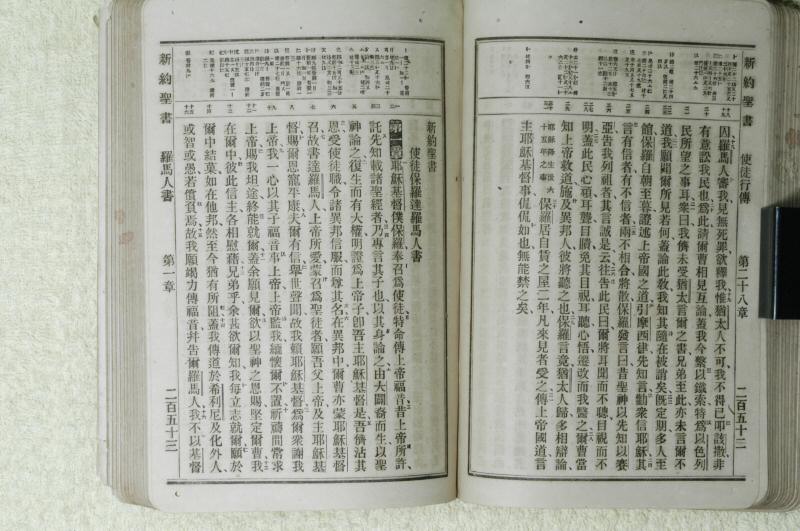 新約聖書　使徒行傳　第二十八章　二百五十二
因羅馬人審我見無死罪欲釋我惟猶太人不可我不得已叩該撒非
有意訟我民也爲此請爾曹相見互論蓋我今繫以鐵索特爲以色列
民所望之事耳衆曰我儕未受猶太言爾之書兄弟至此亦未言爾不
道我願聞爾所見若何蓋論此教我知其隨在被謗矣旣定期多人至
館保羅自朝至暮證述上帝國之道引摩西律先知言勸衆信耶穌其
言有信者有不信者兩不相合將散保羅發言曰昔聖神以先知以賽
亞告我列祖者其言誠是云往告此民曰爾將耳聞而不聰目視而不
明蓋此民心頑耳聾目瞶免其目視耳聽心悟遷改而我醫之爾曹當
知上帝救道施及異邦人彼將聽之也保羅言竟猶太人歸多相辯論
保羅居自賃之屋二年凡來見者受之傳上帝國道言
主耶穌基督事侃侃如也無能禁之矣
新約聖書　羅馬人書　第一章　二百五十三
新約聖書
使徒保羅達羅馬人書
第一章耶穌基督僕保羅奉召爲使徒特命傳上帝福音昔上帝所許
託先知載諸聖經者乃專言其子也以其身論之由大闢裔而生以聖
神論之復生而有大權明證爲上帝子卽吾主耶穌基督是吾儕沾其
恩受使徒職令諸異邦信服而尊其名在異邦中爾曹亦蒙耶穌基督
召故書達羅馬人上帝所愛蒙召爲聖徒者願吾父上帝及主耶穌基
督賜爾恩寵平康夫爾有信舉世聲聞故我賴耶穌基督爲爾衆謝我
上帝我一心以其子福音事上帝上帝監我緬懷爾不置祈禱間常求
上帝賜我坦途終能就爾蓋余願見爾欲以聖神之恩賜堅定爾曹我
在爾中彼此信主各相慰藉兄弟乎余甚欲爾知我每立志就爾願於
爾中結菓如在他邦然至今猶有所阻蓋我傳道於希利尼及化外人
或智或愚若償負焉故我願竭力傳福音幷告爾羅馬人我不以基督